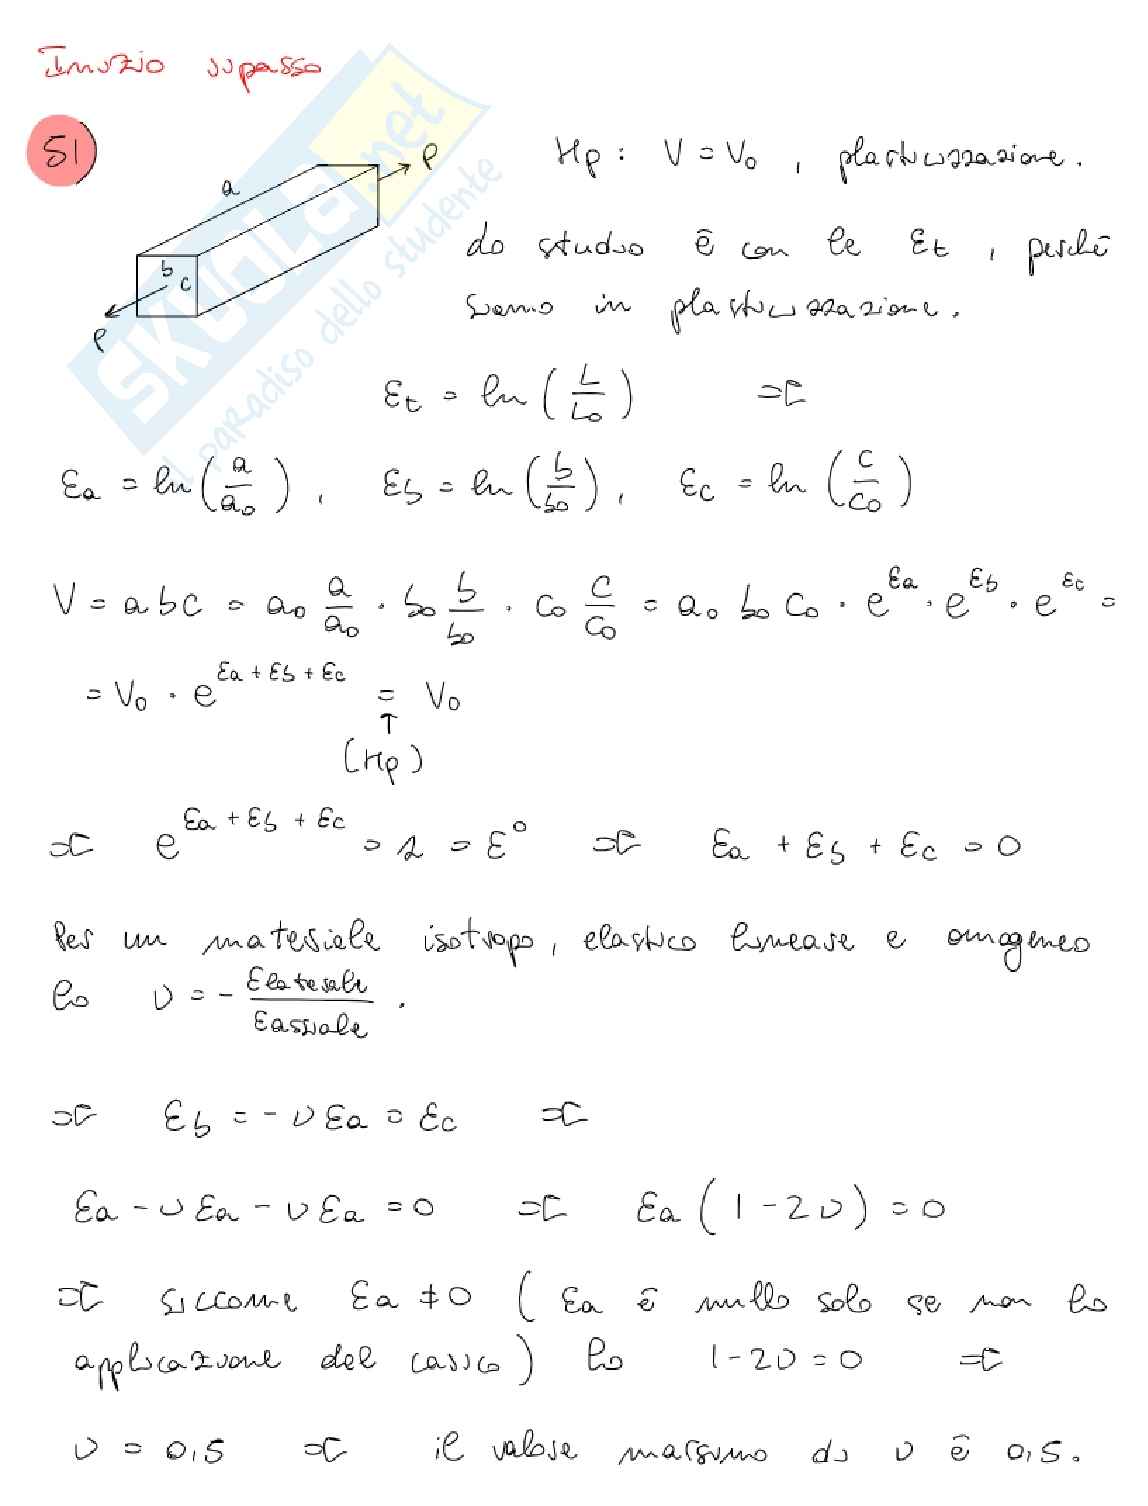 Inizio ripasso
51
a
b
c
P
P
Hp: V = V₀, plasticizzazione.
Lo studio è con le εt, perchè
siamo in plasticizzazione.
εt = ln(L/L₀) ⇒
εa = ln(a/a₀), εb = ln(b/b₀), εc = ln(c/c₀)
V = abc = a₀ a/a₀ · b₀ b/b₀ · c₀ c/c₀ = a₀ b₀ c₀ · e^εa · e^εb · e^εc =
= V₀ · e^(εa + εb + εc) = V₀
↑
(Hp)
⇒ e^(εa + εb + εc) = 1 = ε⁰ ⇒ εa + εb + εc = 0
Per un materiale isotropo, elastico lineare e omogeneo
ho ν = - εlaterale/εassiale.
⇒ εb = - ν εa = εc ⇒
εa - ν εa - ν εa = 0 ⇒ εa (1 - 2ν) = 0
⇒ siccome εa ≠ 0 (εa è nullo solo se non ho
applicazione del carico) ho 1 - 2ν = 0 ⇒
ν = 0,5 ⇒ il valore massimo di ν è 0,5.
SKUOLA.net
il paradiso dello studente